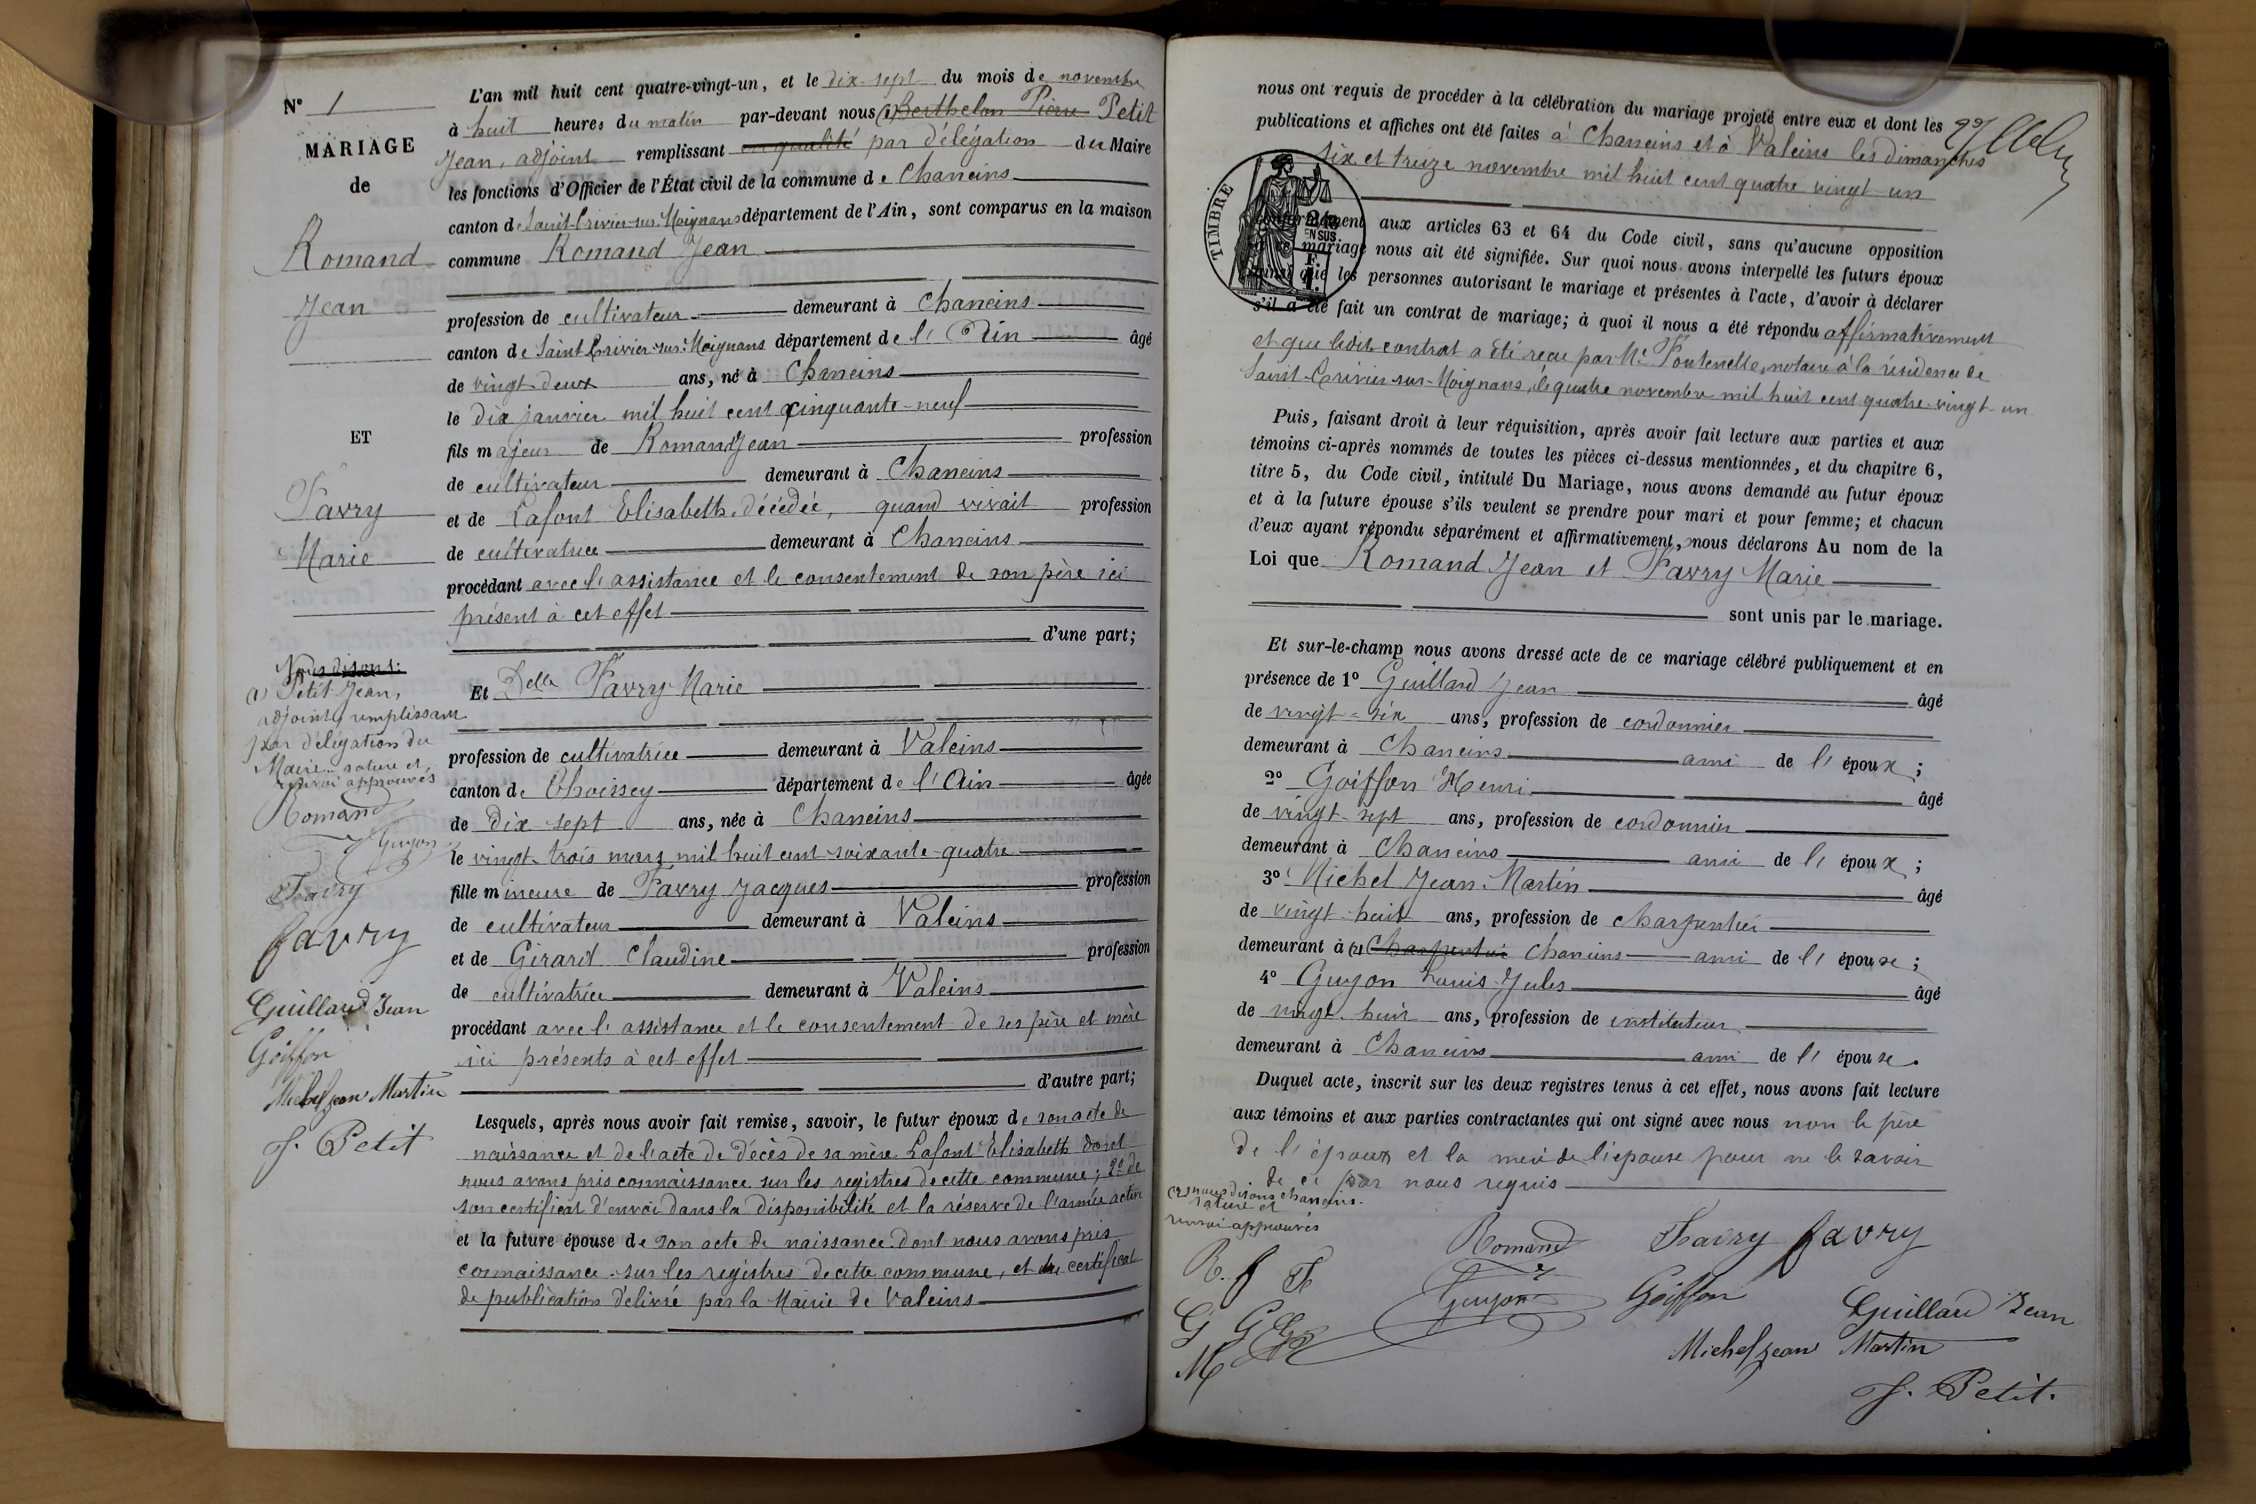 N° 1
MARIAGE
de
Romand
Jean
ET
Favry
Marie
Nous disons:
(1) Petit Jean,
adjoint, remplissant
par délégation du
Maire. rature et
renvoi approuvés
Romand
Guyon
Favry
favry
Guillard Jean
Goiffon
Michel Jean Martin
J. Petit
L'an mil huit cent quatre-vingt-un, et le dix-sept du mois de novembre
à huit heures du matin par-devant nous (1) Berthelon Pierre Petit
Jean, adjoint remplissant en qualité par délégation du Maire
les fonctions d'Officier de l'État civil de la commune de Chaneins
canton de Saint-Trivier-sur-Moignans département de l'Ain, sont comparus en la maison
commune Romand Jean
profession de cultivateur demeurant à Chaneins
canton de Saint Trivier-sur-Moignans département de l'Ain âgé
de vingt deux ans, né à Chaneins
le dix janvier mil huit cent cinquante-neuf
fils majeur de Romand Jean profession
de cultivateur demeurant à Chaneins
et de Lafont Elisabeth, décédée, quand vivait profession
de cultivatrice demeurant à Chaneins
procédant avec l'assistance et le consentement de son père ici
présent à cet effet
d'une part;
Et Delle Favry Marie
profession de cultivatrice demeurant à Valeins
canton de Thoissey département de l'Ain âgée
de dix sept ans, née à Chaneins
le vingt-trois mars mil huit cent soixante-quatre
fille mineure de Favry Jacques profession
de cultivateur demeurant à Valeins
et de Girard Claudine profession
de cultivatrice demeurant à Valeins
procédant avec l'assistance et le consentement de ses père et mère
ici présents à cet effet
d'autre part;
Lesquels, après nous avoir fait remise, savoir, le futur époux de son acte de
naissance et de l'acte de décès de sa mère Lafont Elisabeth dont
nous avons pris connaissance sur les registres de cette commune; 2° de
son certificat d'envoi dans la disponibilité et la réserve de l'armée active
et la future épouse de son acte de naissance dont nous avons pris
connaissance sur les registres de cette commune, et du certificat
de publication délivré par la Mairie de Valeins
nous ont requis de procéder à la célébration du mariage projeté entre eux et dont les
publications et affiches ont été faites à Chaneins et à Valeins les dimanches
six et treize novembre mil huit cent quatre vingt-un
TIMBRE
conformément aux articles 63 et 64 du Code civil, sans qu'aucune opposition
mariage nous ait été signifiée. Sur quoi nous avons interpellé les futurs époux
que les personnes autorisant le mariage et présentes à l'acte, d'avoir à déclarer
s'il a été fait un contrat de mariage; à quoi il nous a été répondu affirmativement
et que ledit contrat a été reçu par Me Fontenelle, notaire à la résidence de
Saint-Trivier-sur-Moignans, le quatre novembre mil huit cent quatre-vingt-un
Puis, faisant droit à leur réquisition, après avoir fait lecture aux parties et aux
témoins ci-après nommés de toutes les pièces ci-dessus mentionnées, et du chapitre 6,
titre 5, du Code civil, intitulé Du Mariage, nous avons demandé au futur époux
et à la future épouse s'ils veulent se prendre pour mari et pour femme; et chacun
d'eux ayant répondu séparément et affirmativement, nous déclarons Au nom de la
Loi que Romand Jean et Favry Marie
sont unis par le mariage.
Et sur-le-champ nous avons dressé acte de ce mariage célébré publiquement et en
présence de 1° Guillard Jean âgé
de vingt-six ans, profession de cordonnier
demeurant à Chaneins ami de l'époux;
2° Goiffon Henri âgé
de vingt-sept ans, profession de cordonnier
demeurant à Chaneins ami de l'époux;
3° Michel Jean-Martin âgé
de vingt-huit ans, profession de charpentier
demeurant à (2) Charpentier Chaneins ami de l'épouse;
4° Guyon Louis-Jules âgé
de vingt-huit ans, profession de instituteur
demeurant à Chaneins ami de l'épouse.
Duquel acte, inscrit sur les deux registres tenus à cet effet, nous avons fait lecture
aux témoins et aux parties contractantes qui ont signé avec nous non le père
de l'époux et la mère de l'épouse pour ne le savoir
de ce par nous requis
(2) nous disons Chaneins.
rature et
renvoi approuvés
R. f F
G G
M
Romand Favry favry
Guyon Goiffon Guillard Jean
Michel Jean Martin
J. Petit.